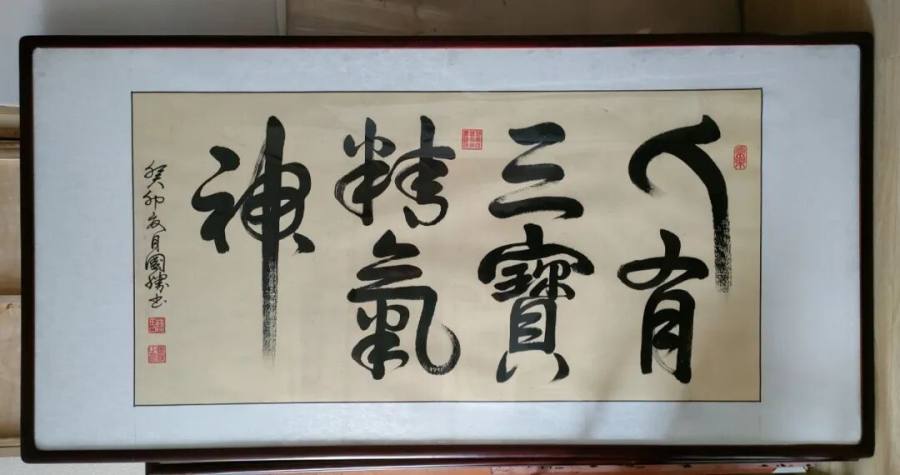 人有
三寶
精氣
神
癸卯夏月國勝書